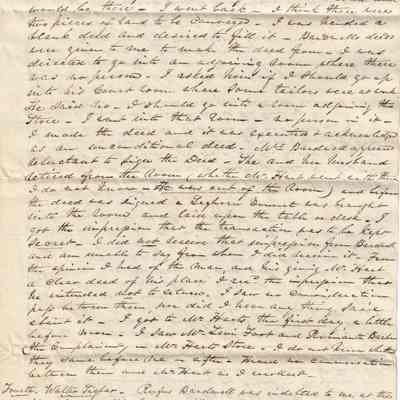 would be there - I went back - I think there were
two pieces of land to be conveyed - I was handed a
blank deed and desired to fill it - Bardwells deeds
were given to me to make the deed from - I was
directed to go into an adjoining room where there
was no person - I asked him if I should go up
into his Court room where some tailors were at work
He said no - I should go into a room adjoining the
Store - I went into that Room - no person in it -
I made the deed and it was executed & acknowledged
as an unconditional deed - Mrs Bardwell appeared
reluctant to sign the Deed - She and her Husband
retired from the Room (whether Mr Hart went with them
I do not know - She was out of the Room) and before
the deed was signed a Leghorn Bonnet was brought
into the Room and laid upon the table or desk - I
got the impression that the transaction was to be kept
Secret - I did not receive that impression from Bardwell
and am unable to say from whom I did receive it. From
the opinion I had of the man, and his giving Mr Hart
a clear deed of his place I recd the impression that
he intended not to return. I saw no communication
pass between them nor did I hear any thing said
about it - I got to Mr Harts the first day a little
before noon - I saw Mr Levi Fart and
the Complainant in Mr Harts Store - I do not know whether
they came before me or after - Heard no conversation
between them and Mr Hart as I worked -
Fourth. Walter - Rufus Bardwell was indebted to me at the